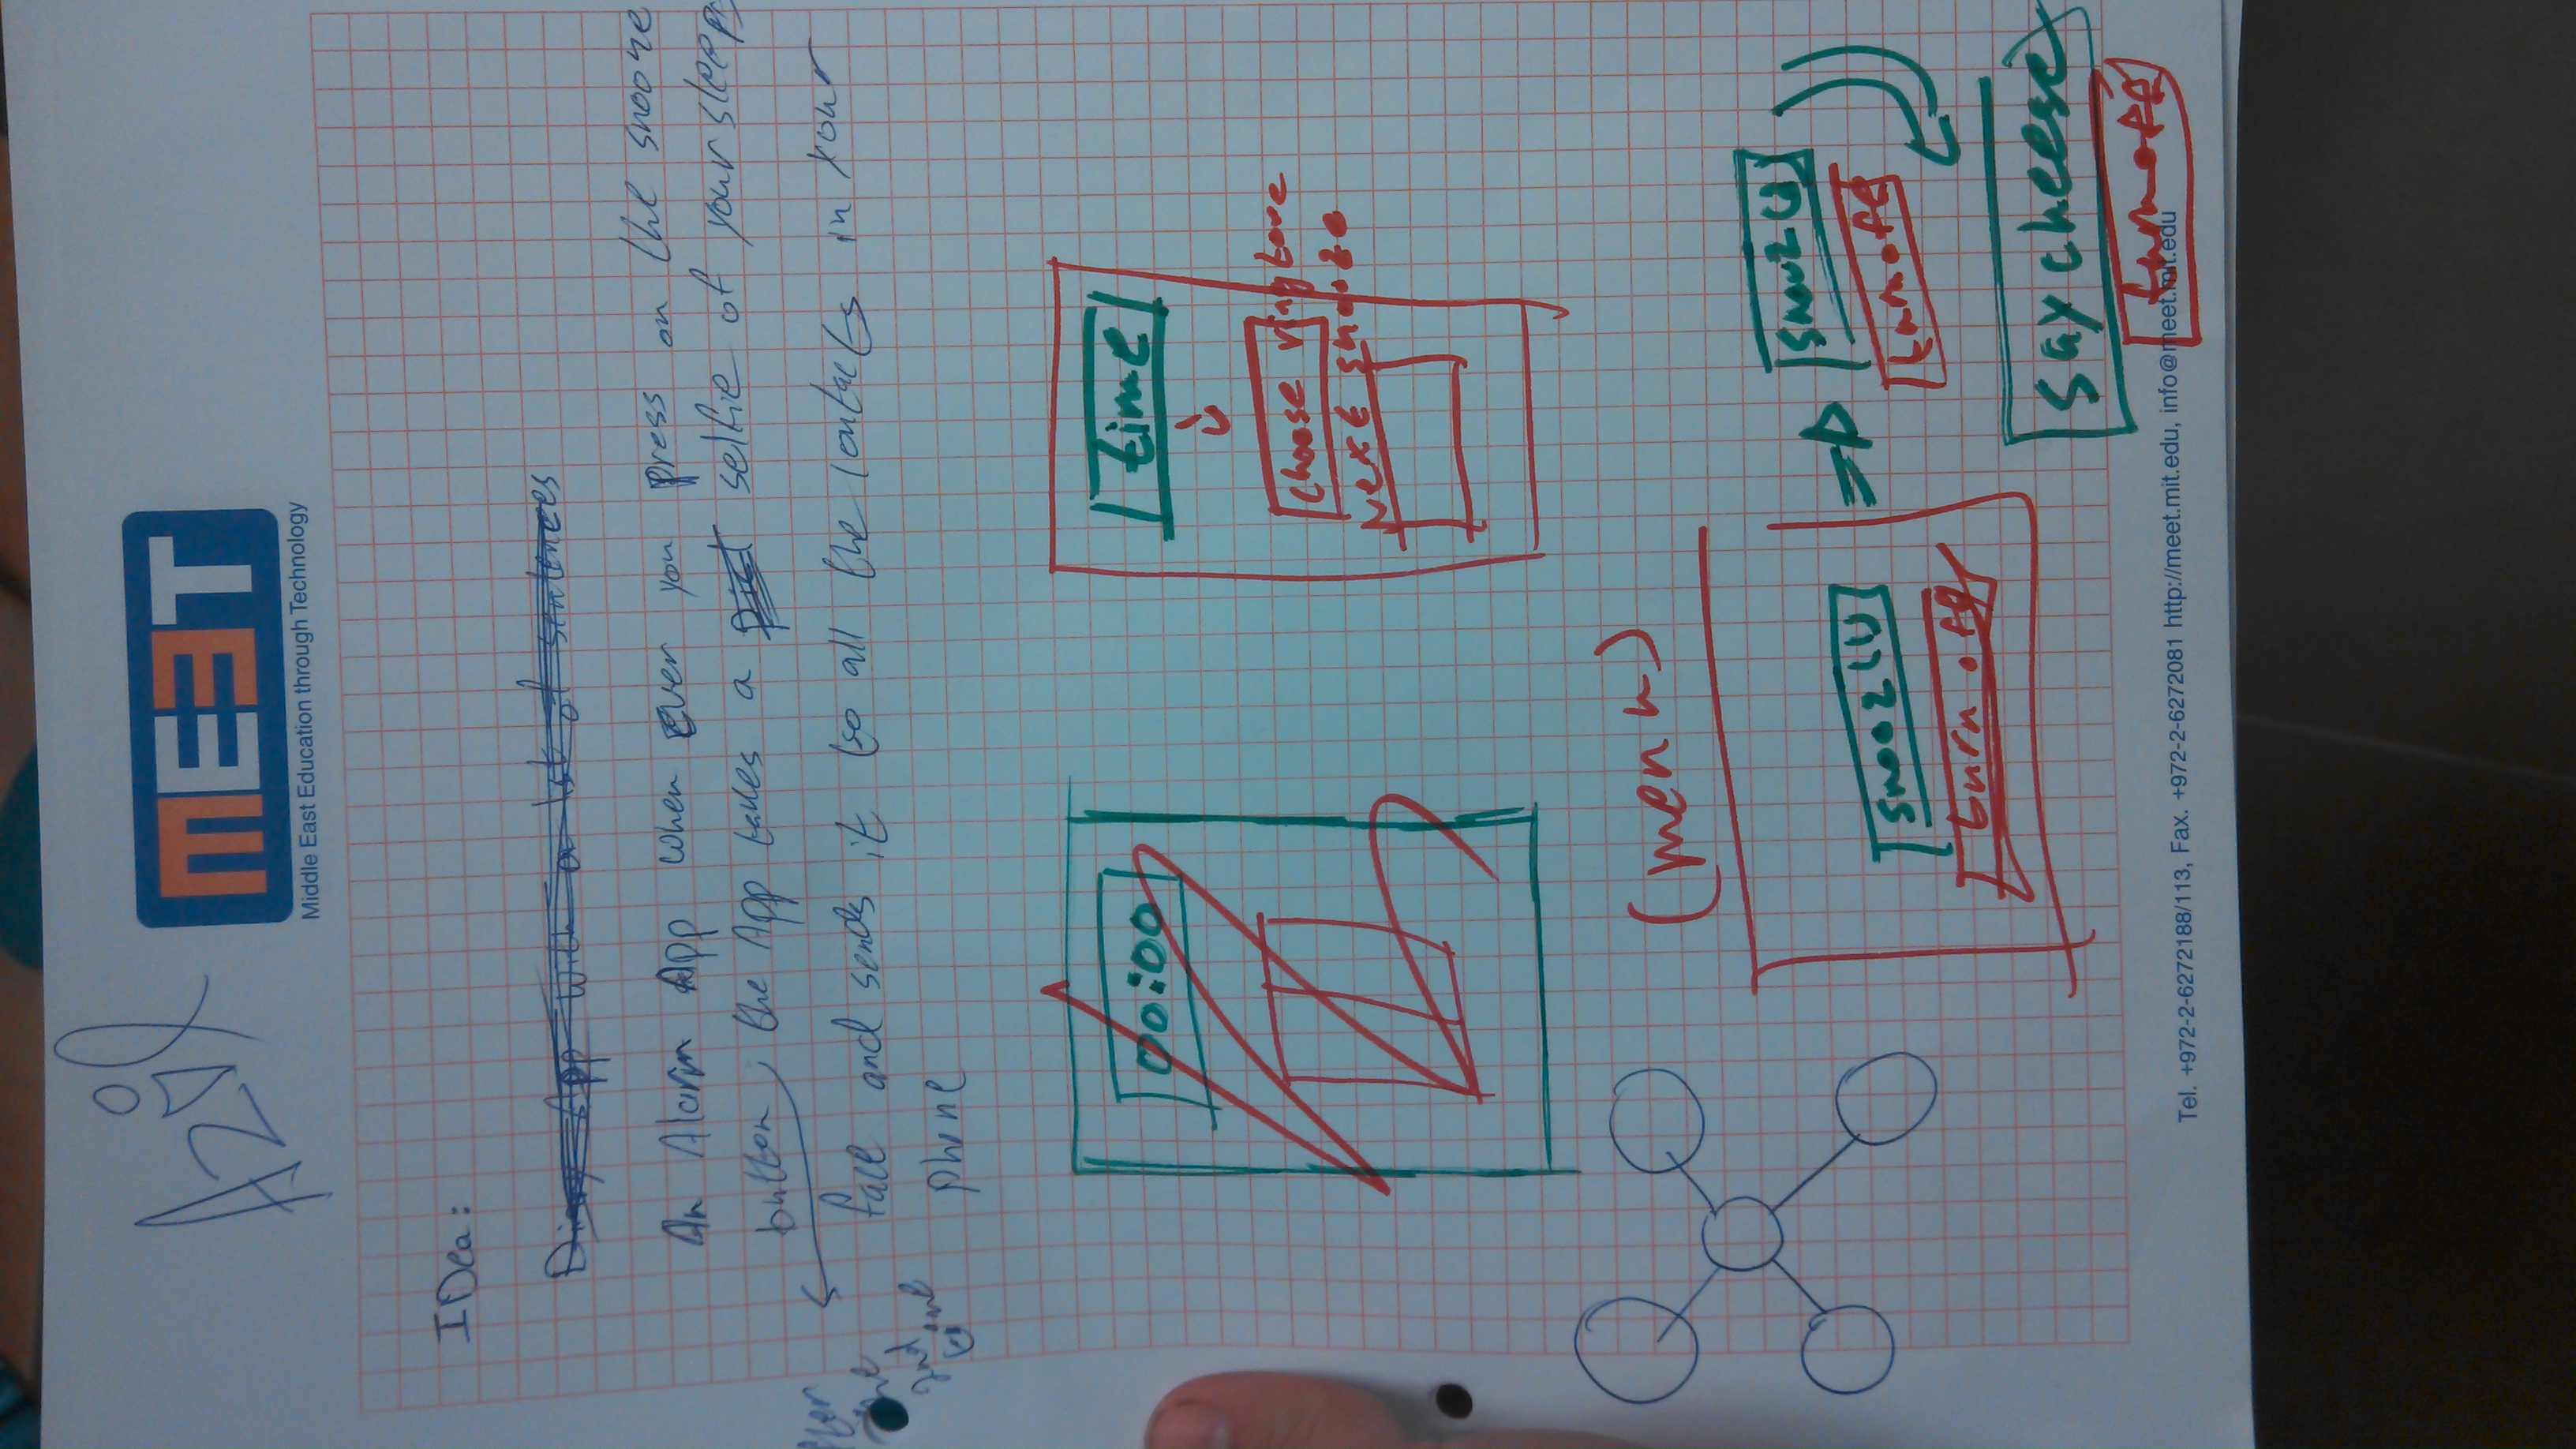 Azil
MEET
Middle East Education through Technology
IDea:
App with a list of sentences
An Alarm App when ever you press on the snooze
button, the App takes a selfie of your sleepy
face and sends it to all the contacts in your
phone
2nd
time
00:00
time
choose ringtone
Next snooze
(menu)
snooz(1)
turn off
snooz(2)
turn off
say cheese
turn off
Tel. +972-2-6272188/113, Fax. +972-2-6272081 http://meet.mit.edu, info@meet.mit.edu